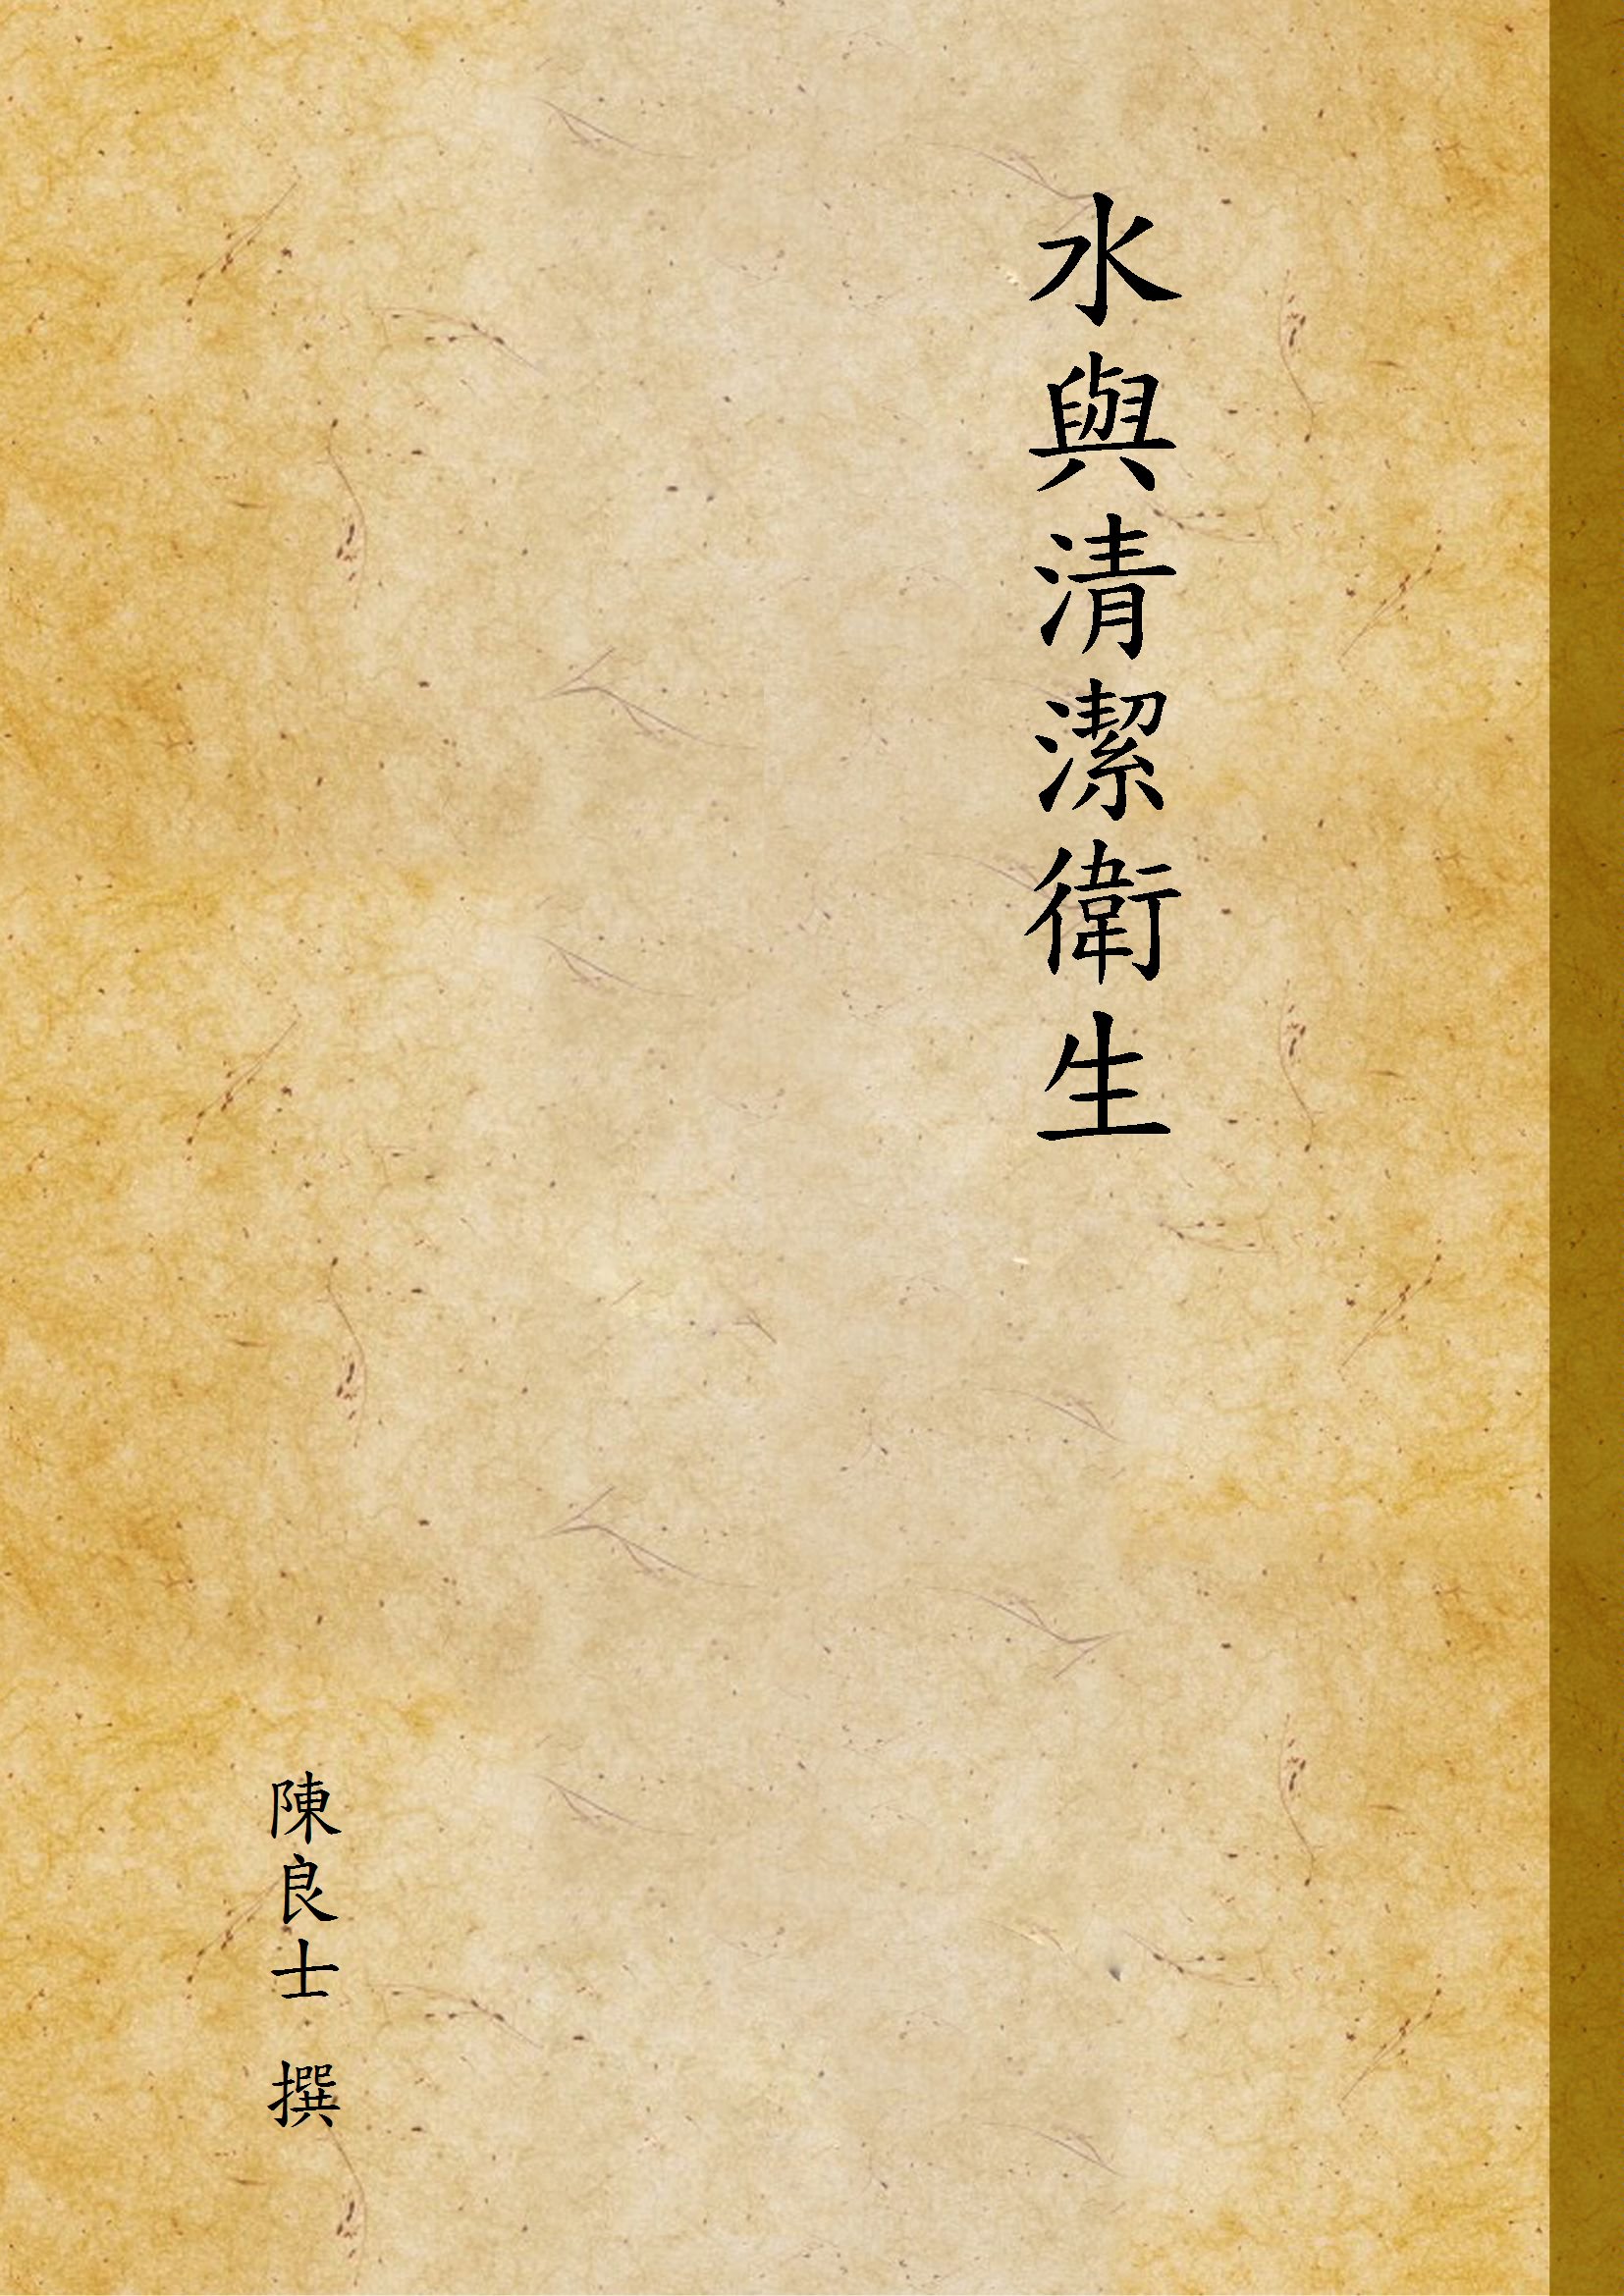 水與清潔衛生
陳良士 撰